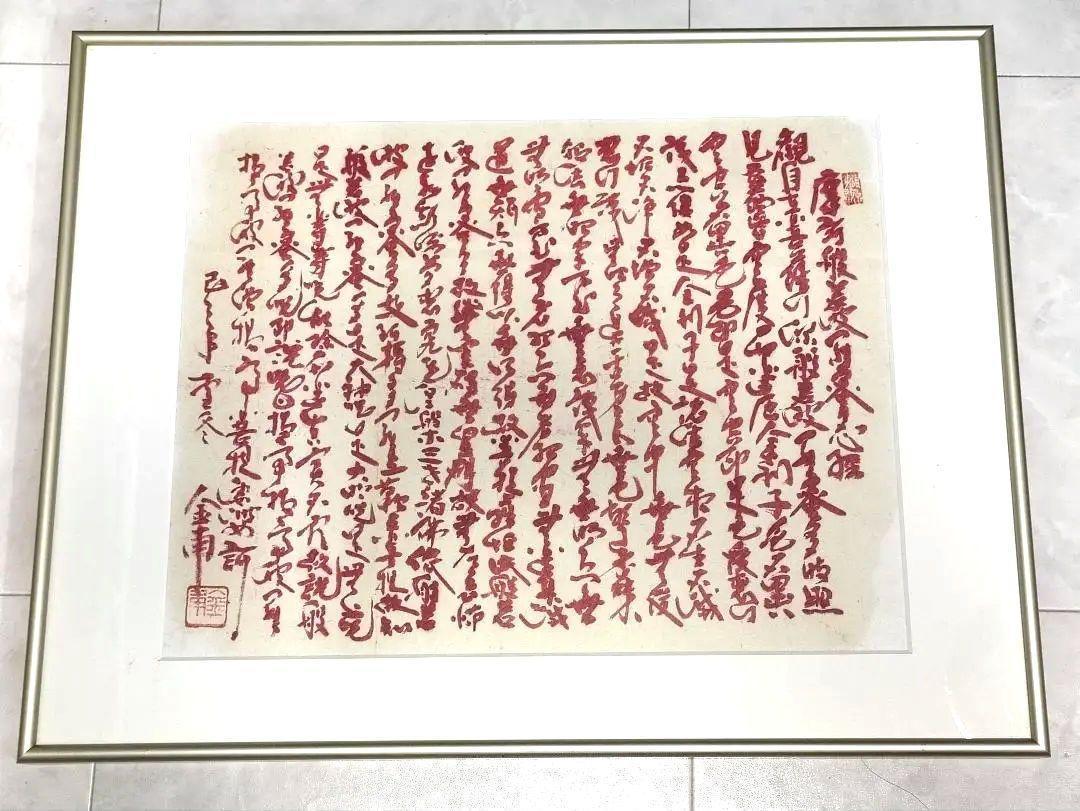 摩訶般若波羅蜜多心經
觀自在菩薩行深般若波羅蜜多時照
見五蘊皆空度一切苦厄舍利子色不異
空空不異色色即是空空即是色受想行
識亦復如是舍利子是諸法空相不生不滅
不垢不淨不增不減是故空中無色無受
想行識無眼耳鼻舌身意無色聲香味
觸法無眼界乃至無意識界無無明亦無
無明盡乃至無老死亦無老死盡無苦集滅
道無智亦無得以無所得故菩提薩埵依般若
波羅蜜多故心無罣礙無罣礙故無有恐怖
遠離顛倒夢想究竟涅槃三世諸佛依般若
波羅蜜多故得阿耨多羅三藐三菩提故知
般若波羅蜜多是大神咒是大明咒是無上咒
是無等等咒能除一切苦真實不虛故說般
若波羅蜜多咒即說咒曰揭諦揭諦波羅
揭諦波羅僧揭諦菩提薩婆訶
年冬
金